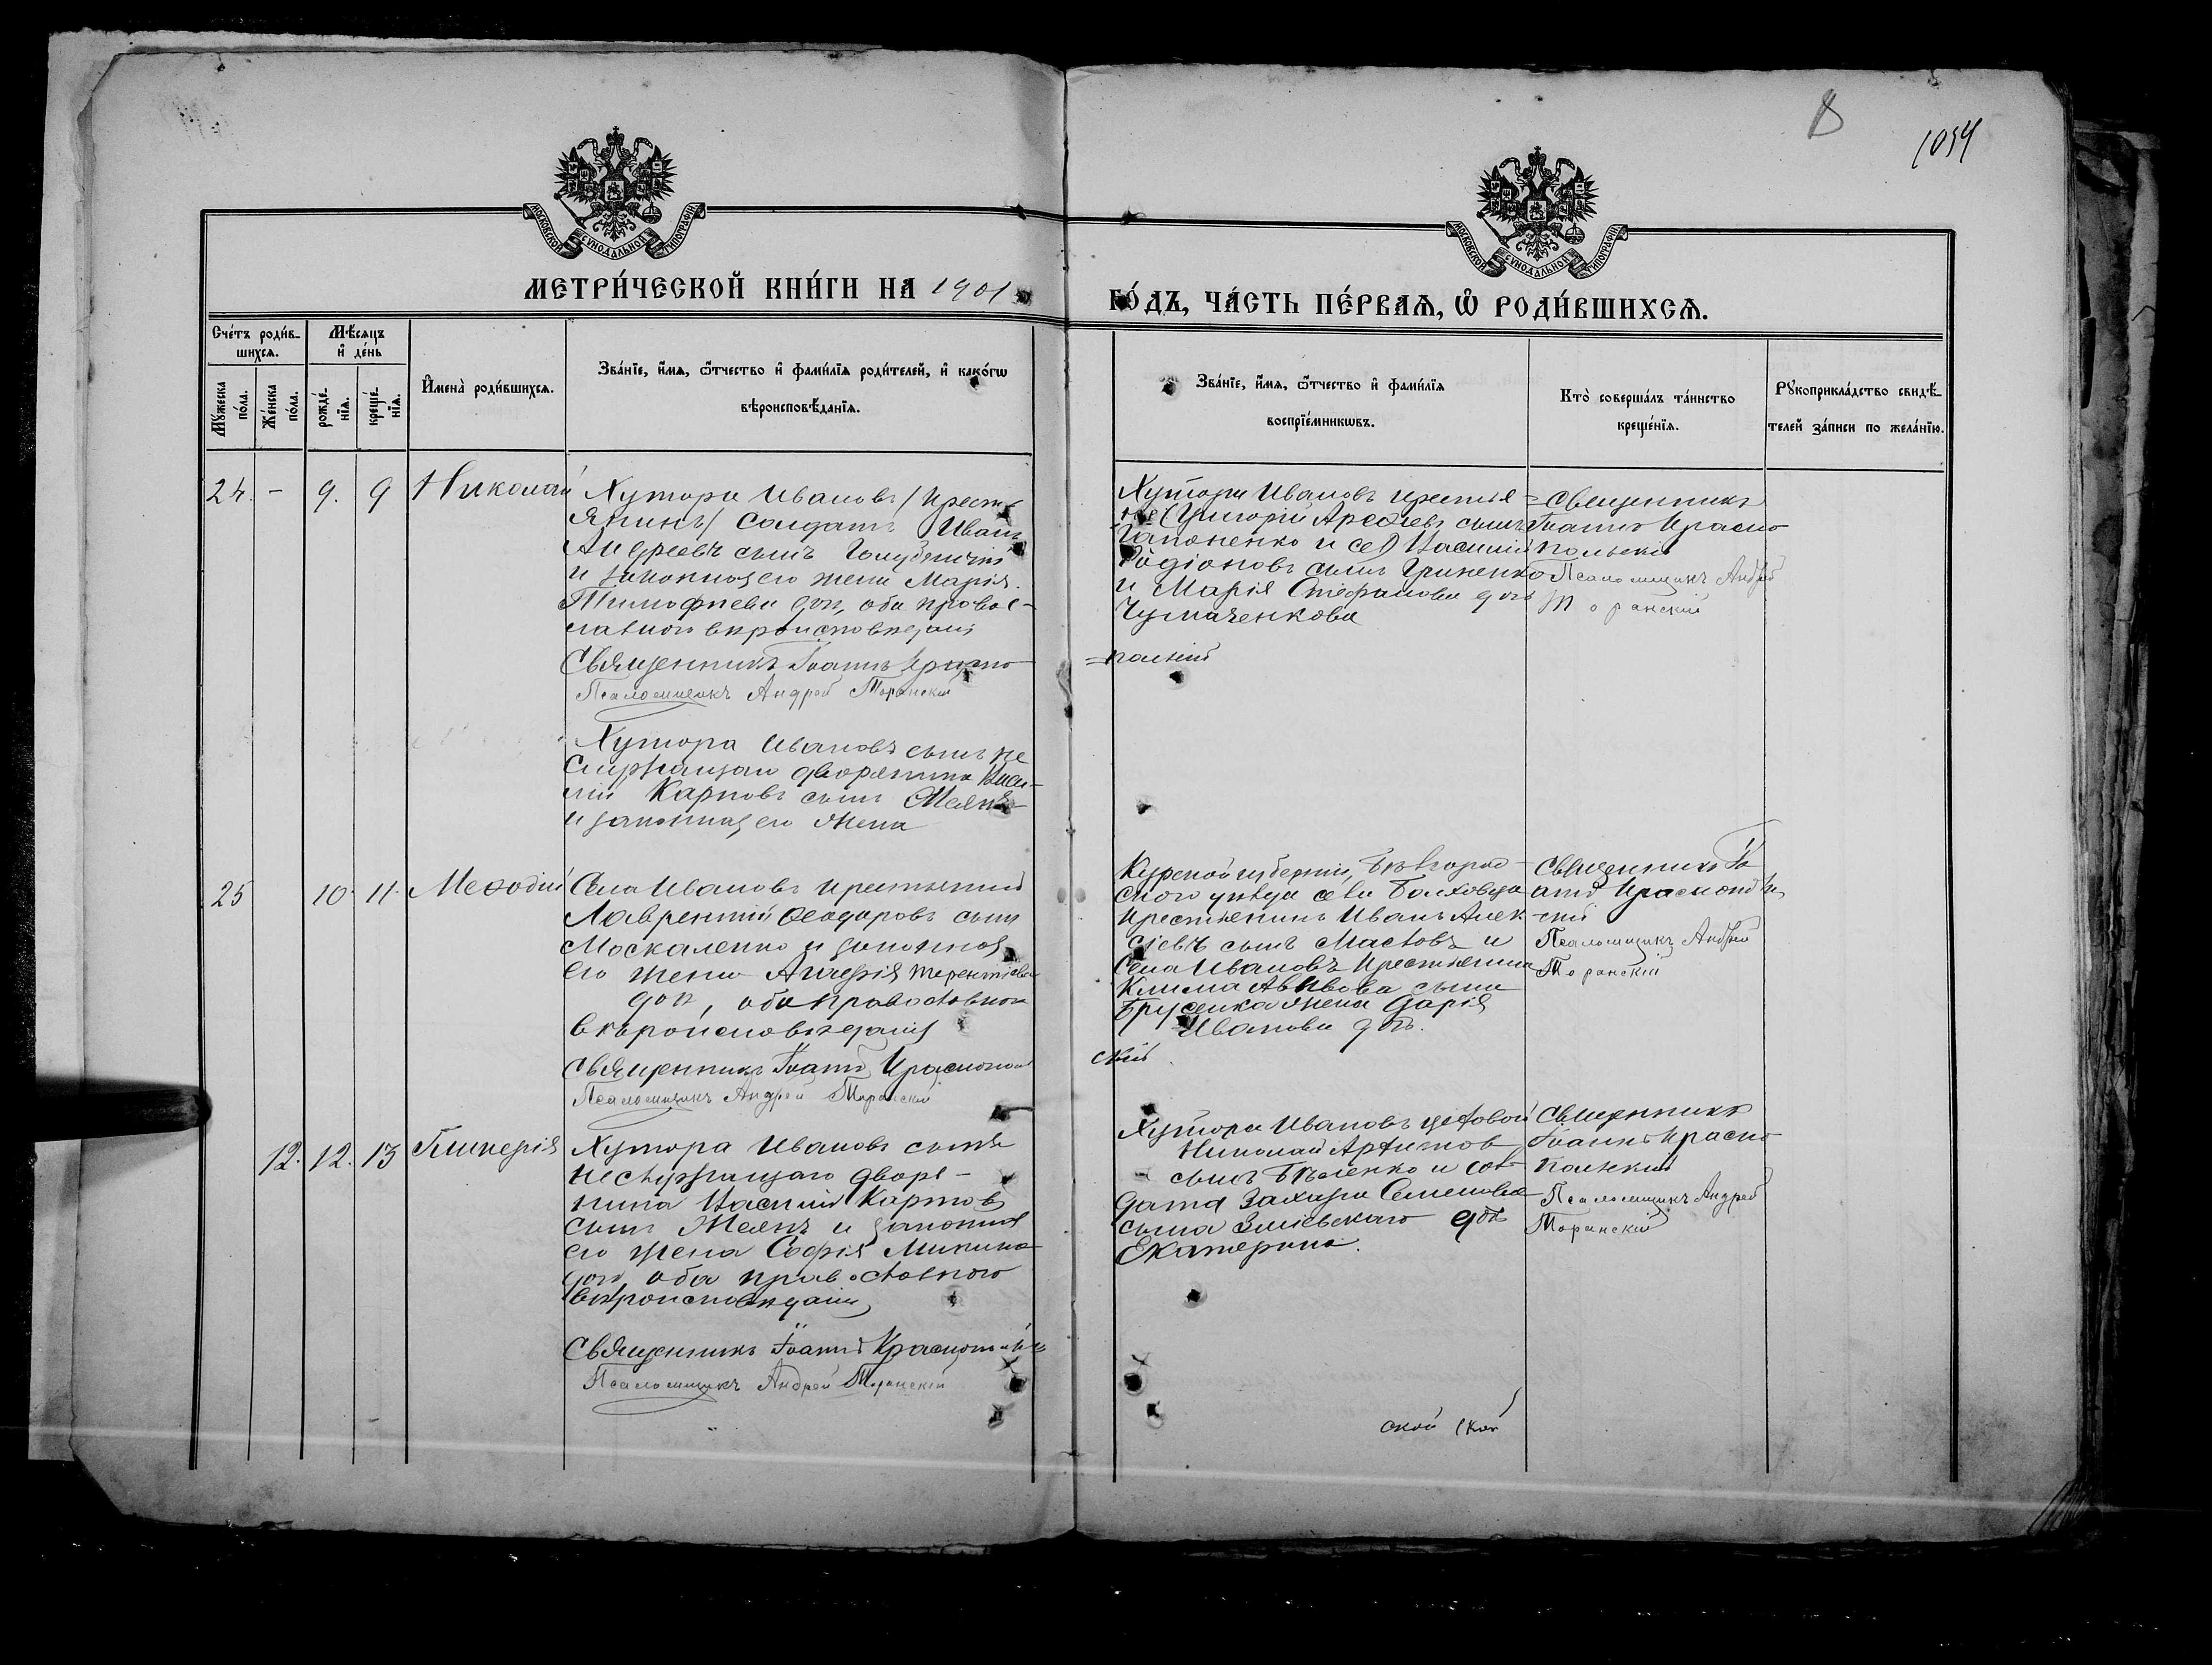 1054
МОСКОВСКОЙ СѴНОДАЛЬНОЙ ТИПОГРАФІИ
МОСКОВСКОЙ СѴНОДАЛЬНОЙ ТИПОГРАФІИ
МЕТРИ́ЧЕСКОЙ КНИ́ГИ НА 1901
ГО́ДЪ, ЧА́СТЬ ПЕ́РВАѦ, Ѽ РОДИ́ВШИХСѦ.
Сче́тъ роди́в-
шихсѧ.
Мꙋжеска по́ла.
Же́нска по́ла.
Мѣ́сѧцъ
и҆ де́нь
рожде́-
нїѧ.
креще́-
нїѧ.
И҆мена̀ роди́вшихсѧ.
Зва́нїе, и҆́мѧ, ѻ҆́тчество и҆ фами́лїѧ роди́телей, и҆ како́гѡ
вѣроисповѣ́данїѧ.
Зва́нїе, и҆́мѧ, ѻ҆́тчество и҆ фами́лїѧ
воспрїе́мникѡвъ.
Кто̀ соверша́лъ та́инство
креще́нїѧ.
Рꙋкоприкла́дство свидѣ́-
телей за́писи по жела́нїю.
24. - 9. 9 Николай
Хутора Иванов (крест-
янинъ) солдатъ Иванъ
Андреевъ сынъ
и законная его жена Марія
Тимофѣева доч, оба правос-
лавного вѣроисповѣданія
Священникъ Іоаннъ Красно-
Псаломщикъ Андрей Торанскій
Хутора Ивановъ крестья-
Григорій сынъ
Гапоненко и Василій
Родіоновъ сынъ Гриненко
и Марія Стефанова доч
Чумаченкова
=польскій
Священникъ
Іоаннъ Красно
польскій
Псаломщикъ Андрей
Торанскій
Хутора Ивановъ сынъ не
служащаго дворянина Васи-
лій Карповъ сынъ
и законная его жена
25 10. 11. Меѳодій
Села Ивановъ крестьянинъ
Лаврентій Ѳеодоровъ сынъ
Москаленко и законная
его жена Терентіева
доч, оба православного
вѣроисповѣданія
Священникъ Іоаннъ Краснополь
Псаломщикъ Андрей Торанскій
Курской губерніи, Бѣлгород-
ского уѣзда села Болховца
крестьянинъ Иванъ Алек-
сіевъ сынъ Маслов и
села Ивановъ крестьянина
Клима сына
Брусенка жена Дарія
Иванова доч.
скій
Священникъ Іо
аннъ Краснополь
скій
Псаломщикъ Андрей
Торанскій
12. 12. 13 Гликерія
Хутора Иванов сынъ
неслужащаго дворя-
нина Василій Карпов
сынъ и законная
его жена Софія Микина
доч, оба православного
вѣроисповѣданія
Священникъ Іоаннъ Краснополь
Псаломщикъ Андрей Торанскій
Хутора Ивановъ цеховой
Николай
сынъ Бѣленко и сол-
дата Захаріи Семенова
сына Зміевскаго доч
Екатерина.
Священникъ
Іоаннъ Красно
польскій
Псаломщикъ Андрей
Торанскій
ской